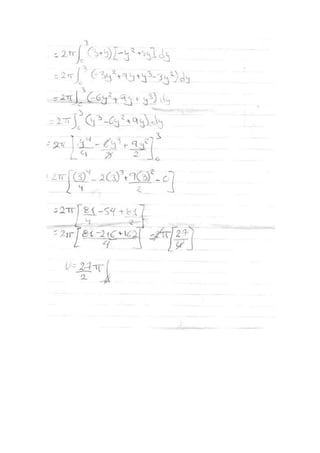 = 2π ∫₀³ (3-y)[-y²+3y] dy
= 2π ∫₀³ (-3y²+9y+y³-3y²) dy
= 2π ∫₀³ (-6y²+9y+y³) dy
= 2π ∫₀³ (y³-6y²+9y) dy
= 2π [y⁴/4 - 6y³/3 + 9y²/2]₀³
= 2π [(3)⁴/4 - 2(3)³ + 9(3)²/2 - 0]
= 2π [81/4 - 54 + 81/2]
= 2π [81-216+162/4] = 2π [27/4]
V = 27/2 π